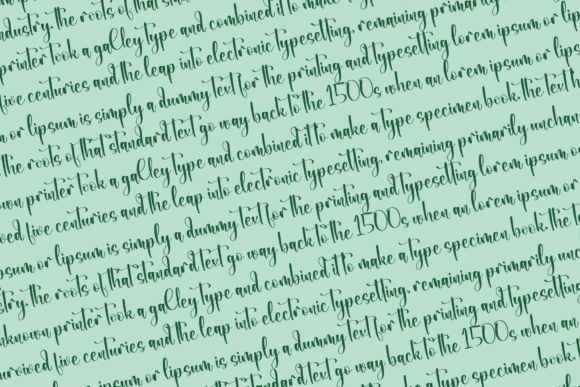 ndustry. the roots of that
printer took a galley type and combined it to make a type
five centuries and the leap into electronic typesetting, remaining primaril
m or lipsum is simply a dummy text for the printing and typesetting lorem ipsum or lip
the roots of that standard text go way back to the 1500s when an lorem ipsum or lips
own printer took a galley type and combined it to make a type specimen book. the text h
ived five centuries and the leap into electronic typesetting, remaining primarily unchan
psum or lipsum is simply a dummy text for the printing and typesetting lorem ipsum o
stry. the roots of that standard text go way back to the 1500s when an lorem ipsum or
nknown printer took a galley type and combined it to make a type specimen book. the t
urvived five centuries and the leap into electronic typesetting, remaining primarily unc
or lipsum is simply a dummy text for the printing and typesetting
standard text go way back to the 1500s when an
make a type specimen book. t